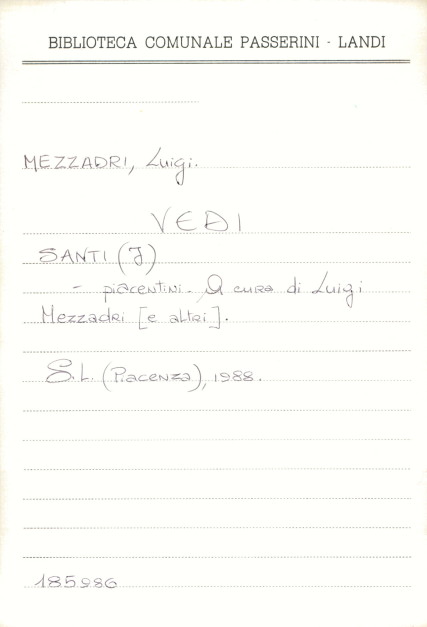 BIBLIOTECA COMUNALE PASSERINI - LANDI
MEZZADRI, Luigi.
VEDI
SANTI (I)
- piacentini. A cura di Luigi
Mezzadri [e altri].
S.L. (Piacenza), 1988.
185986